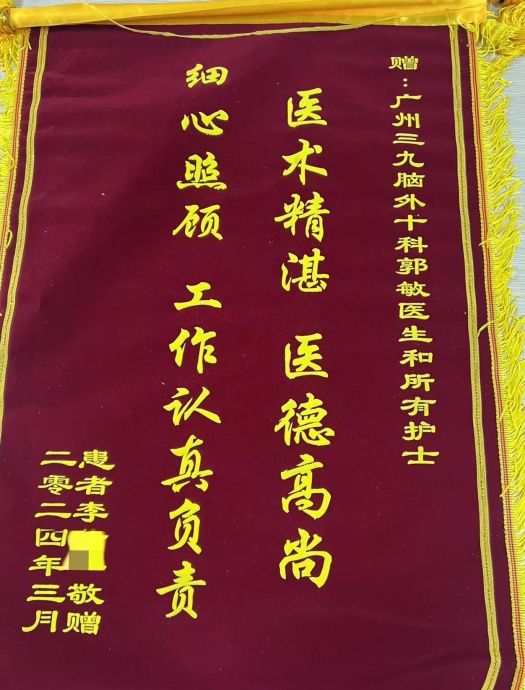 赠：广州三九脑外十科郭敏医生和所有护士
医术精湛 医德高尚
细心照顾 工作认真负责
患者李 敬赠
二零二四年三月